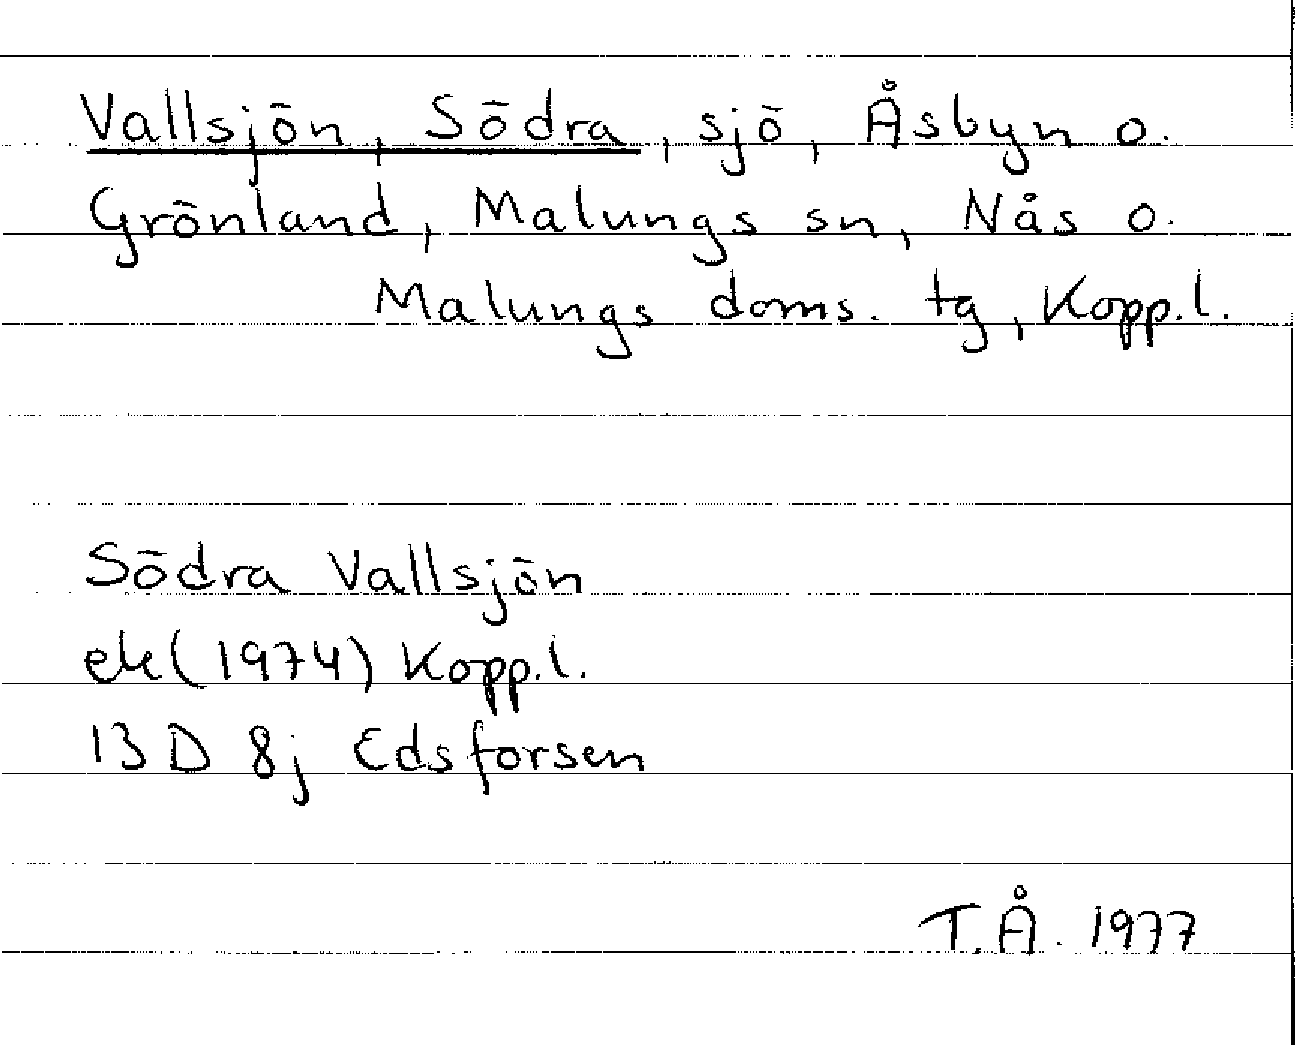 Vallsjön, Södra, sjö, Åsbyn o.
Grönland, Malungs sn, Nås o.
Malungs doms. tg, Kopp.l.
Södra Vallsjön
ek (1974) Kopp.l.
13 D 8j Edsforsen
T.Å. 1977